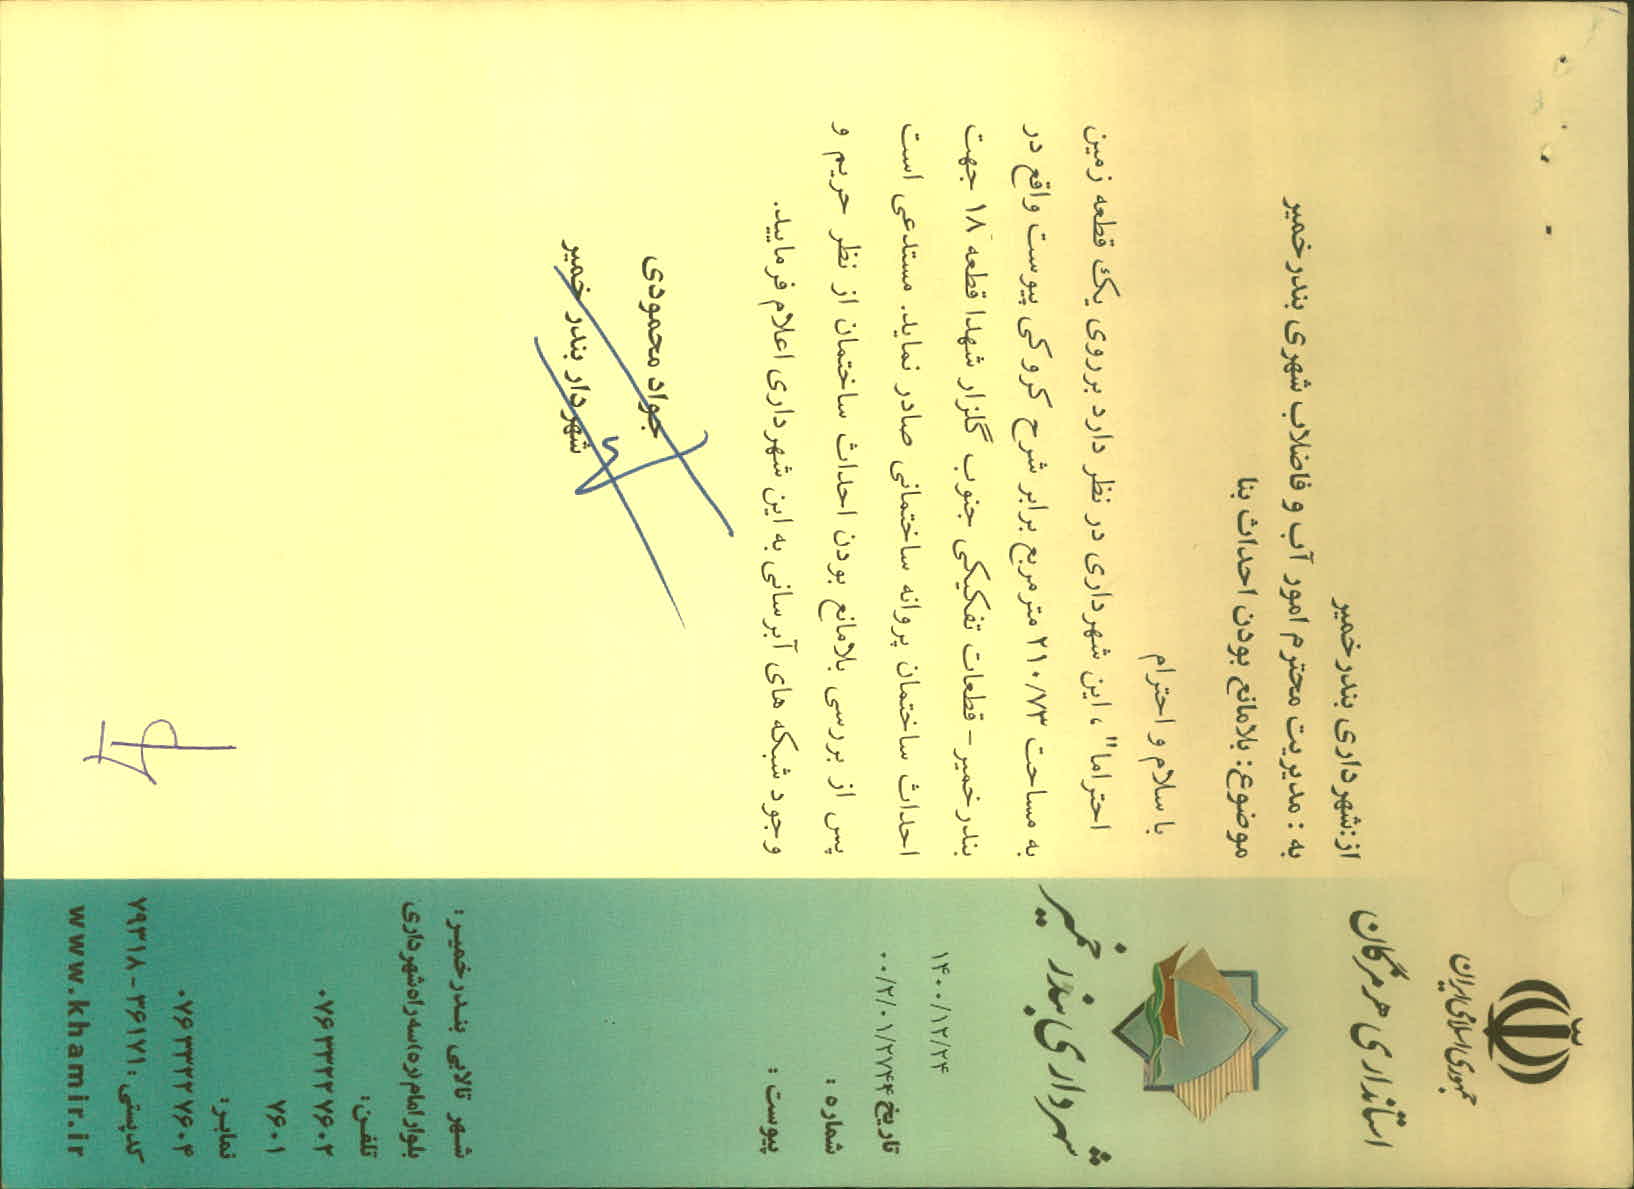 جمهوری اسلامی ایران
استانداری هرمزگان
شهرداری بندر خمیر
۱۴۰۰/۱۲/۲۴
تاریخ ۰۰/۲/۰۱/۲۷۴۴
شماره :
پیوست :
از:شهرداری بندرخمیر
به : مدیریت محترم امور آب و فاضلاب شهری بندرخمیر
موضوع: بلامانع بودن احداث بنا
با سلام و احترام
احتراما" ، این شهرداری در نظر دارد برروی یک قطعه زمین
به مساحت ۲۱۰/۷۳ مترمربع برابر شرح کروکی پیوست واقع در
بندرخمیر- قطعات تفکیکی جنوب گلزار شهدا قطعه ۱۸ جهت
احداث ساختمان پروانه ساختمانی صادر نماید. مستدعی است
پس از بررسی بلامانع بودن احداث ساختمان از نظر حریم و
وجود شبکه های آبرسانی به این شهرداری اعلام فرمایید.
جواد محمودی
شهردار بندر خمیر
شهر تالابی بندرخمیر:
بلوار امام(ره)سه راه شهرداری
تلفن:
۰۷۶۳۳۲۲۷۶۰۲
۷۶۰۱
نمابر:
۰۷۶۳۳۲۲۷۶۰۴
کدپستی : ۳۶۱۷۱ - ۷۹۳۱۸
www.khamir.ir